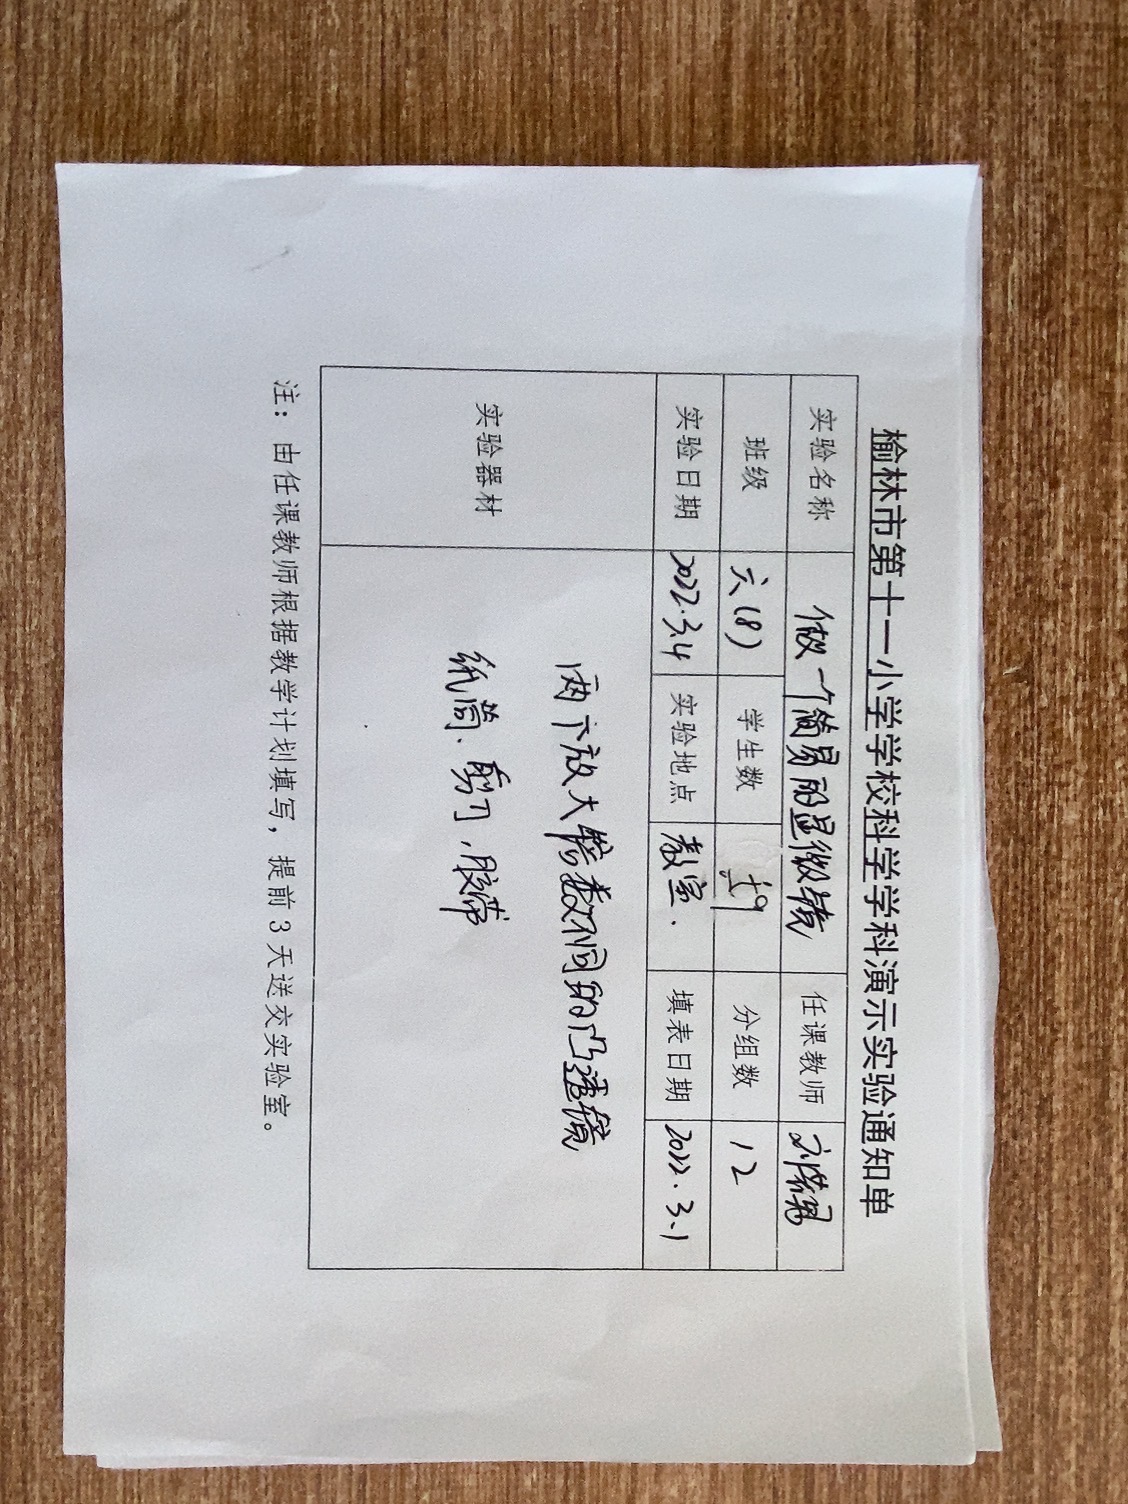 榆林市第十一小学学校科学学科演示实验通知单
实验名称 做一个简易的显微镜 任课教师
班级 六(8) 学生数 分组数 12
实验日期 2022.3.4 实验地点 教室. 填表日期 2022.3.1
实验器材
两个放大倍数不同的凸透镜
纸筒、剪刀,胶带
注：由任课教师根据教学计划填写，提前3天送交实验室。